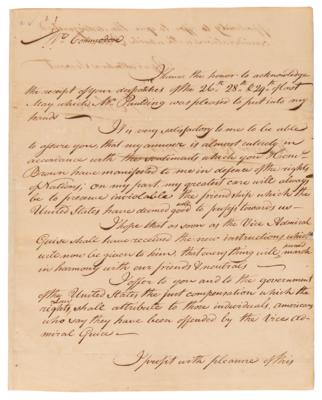 Mr. Commodore
I have the honor to acknowledge
the receipt of your despatches of the 26th 28th & 24th of last
May which Mr. Paulding was pleased to put into my
hands
It is very satisfactory to me to be able
to assure you that my answer is almost entirely in
accordance with the sentiments which you
Brown have manifested to me in defence of the rights
of Nations; on my part my greatest care will always
be to preserve inviolable the friendship which the
United States have deemed good to profess towards us
I hope that as soon as the Vice Admiral
Guise shall have received the new instructions which
will now be given to him, that every thing will march
in harmony with our friends & neutrals
I offer to you and to the government
of the United States the just compensation which the
rights shall attribute to those individuals, americans
who say they have been offended by the Vice Ad-
miral Guise
I profit with pleasure of this